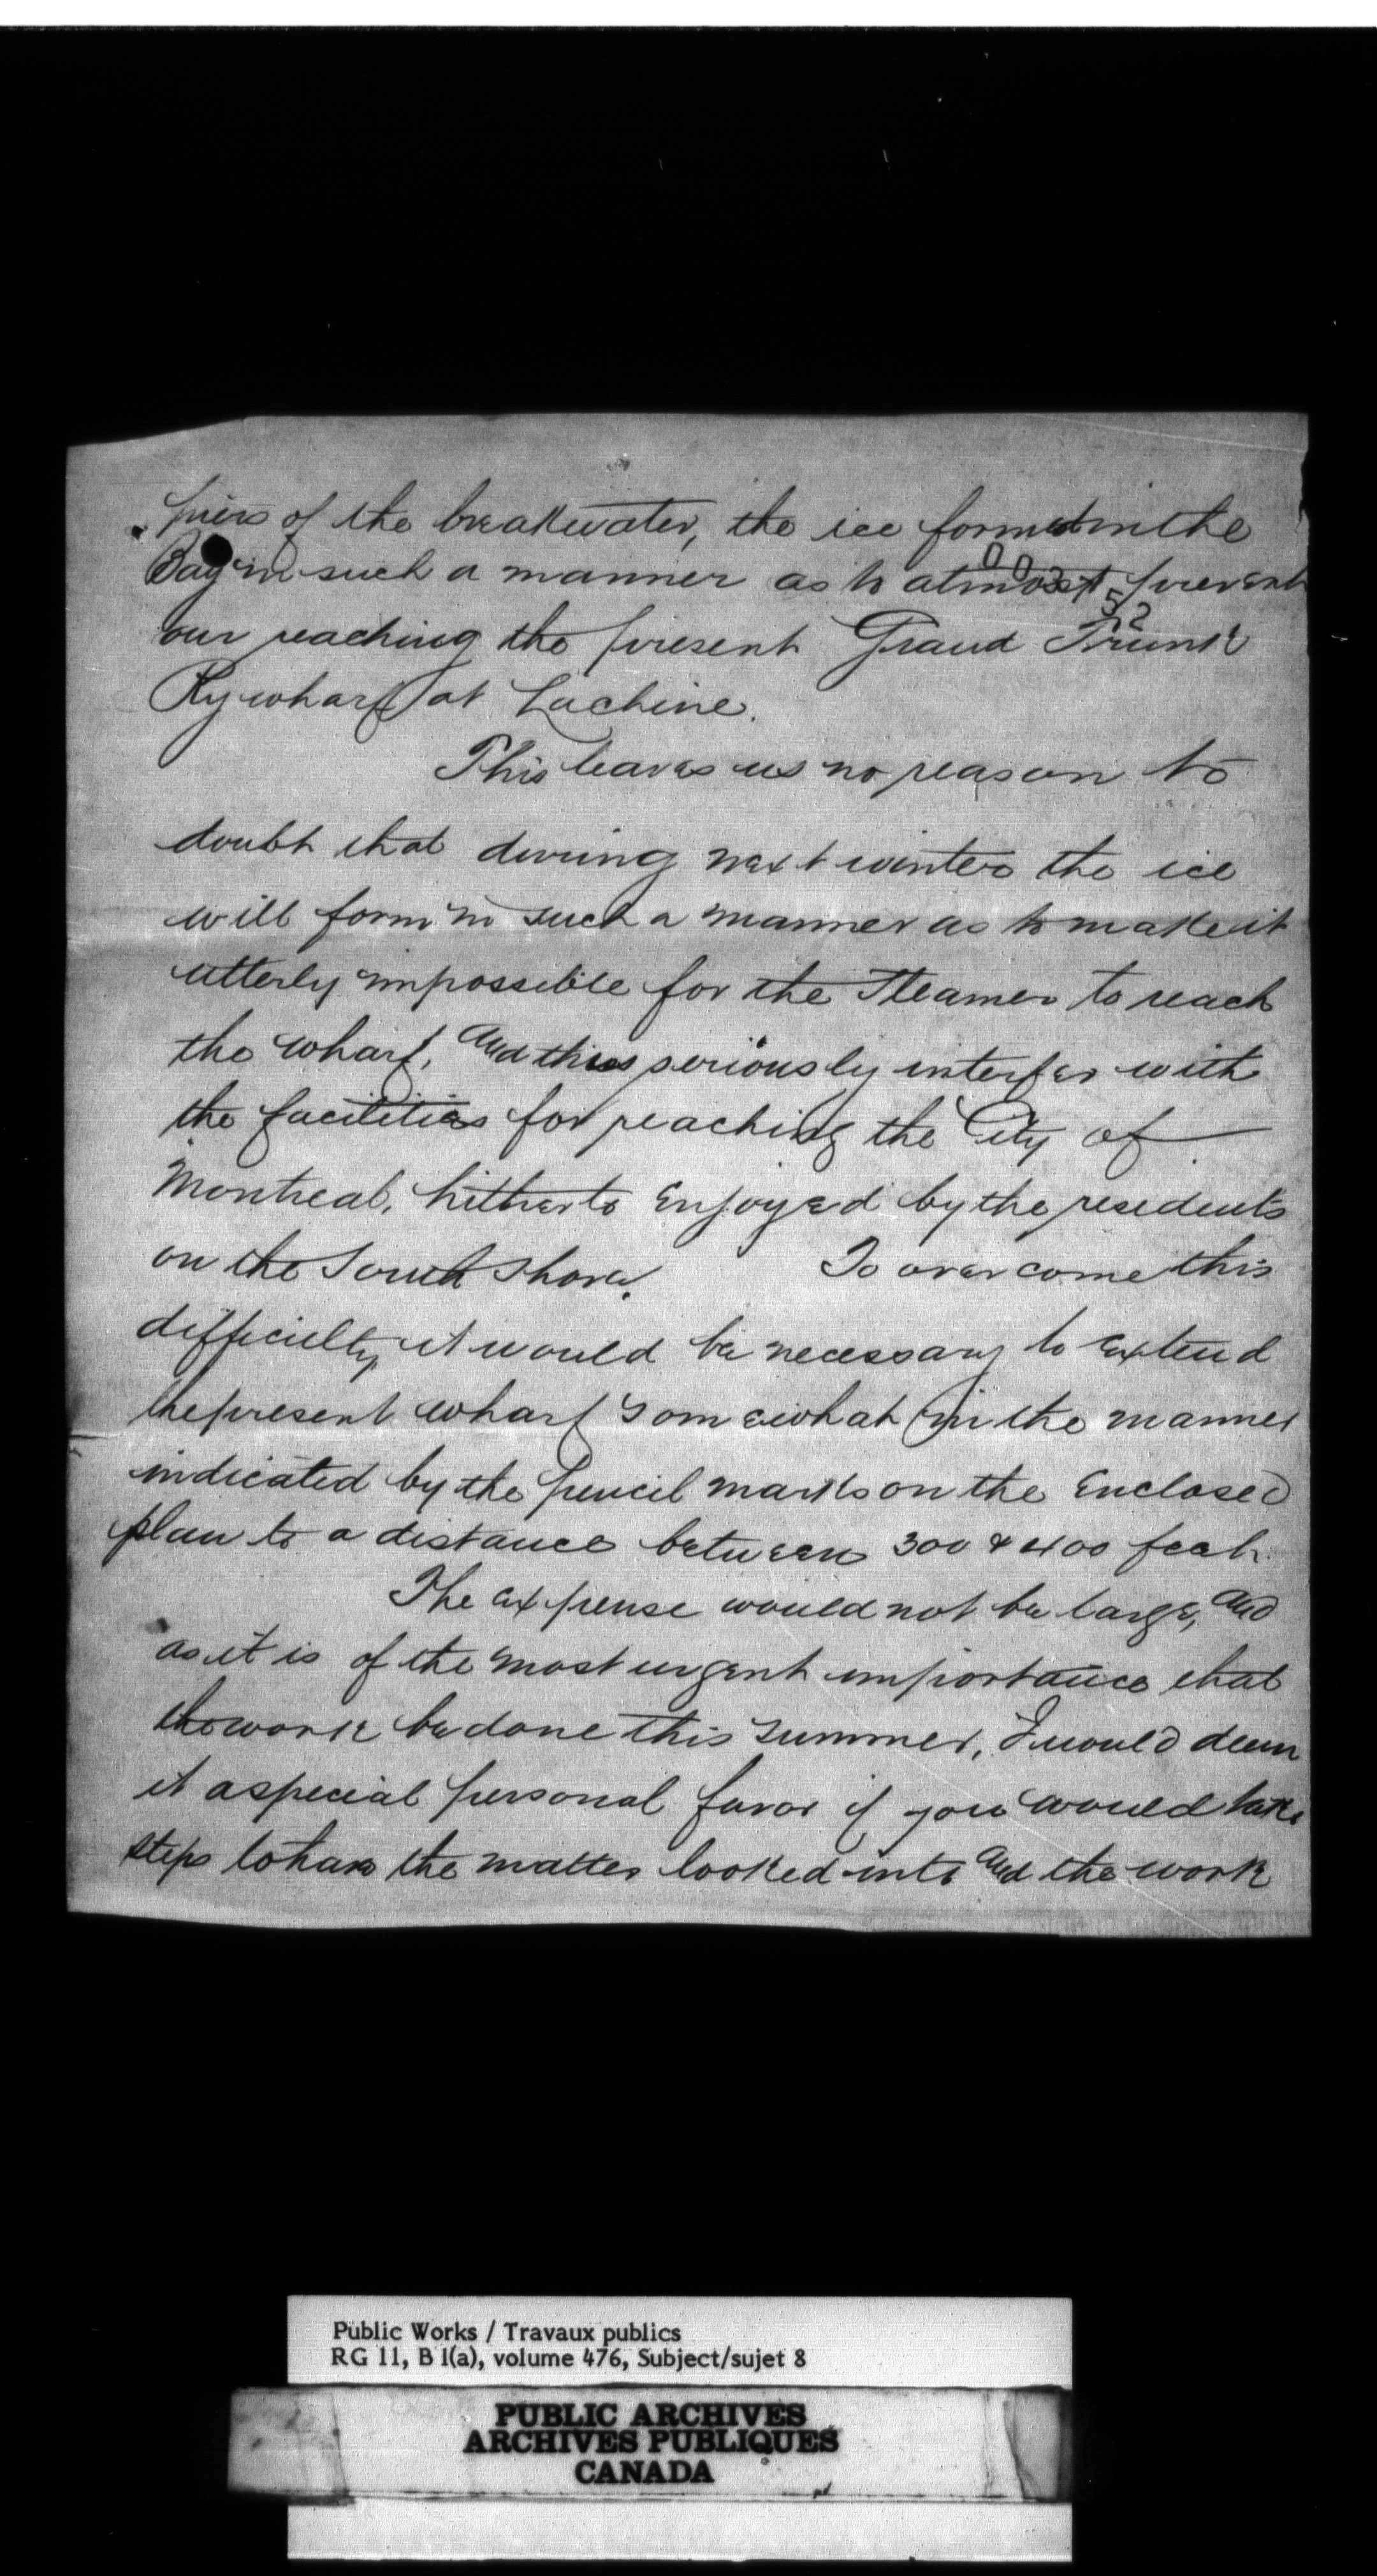 piers of the breakwater, the ice formed in the
Bay in such a manner as to almost prevent
our reaching the present Grand Trunk
Ry wharf at Lachine.
This leaves us no reason to
doubt that during next winter the ice
will form in such a manner as to make it
utterly impossible for the Steamer to reach
the wharf, and thus seriously interfer with
the facilities for reaching the City of
Montreal, hitherto enjoyed by the residents
on the South Shore. To overcome this
difficulty it would be necessary to extend
the present wharf somewhat in the manner
indicated by the pencil marks on the enclosed
plan to a distance between 300 & 400 feet.
The expense would not be large, and
as it is of the most urgent importance that
the work be done this summer, I would deem
it a special personal favor if you would take
steps to have the matter looked into and the work
Public Works / Travaux publics
RG 11, B 1(a), volume 476, Subject/sujet 8
PUBLIC ARCHIVES
ARCHIVES PUBLIQUES
CANADA